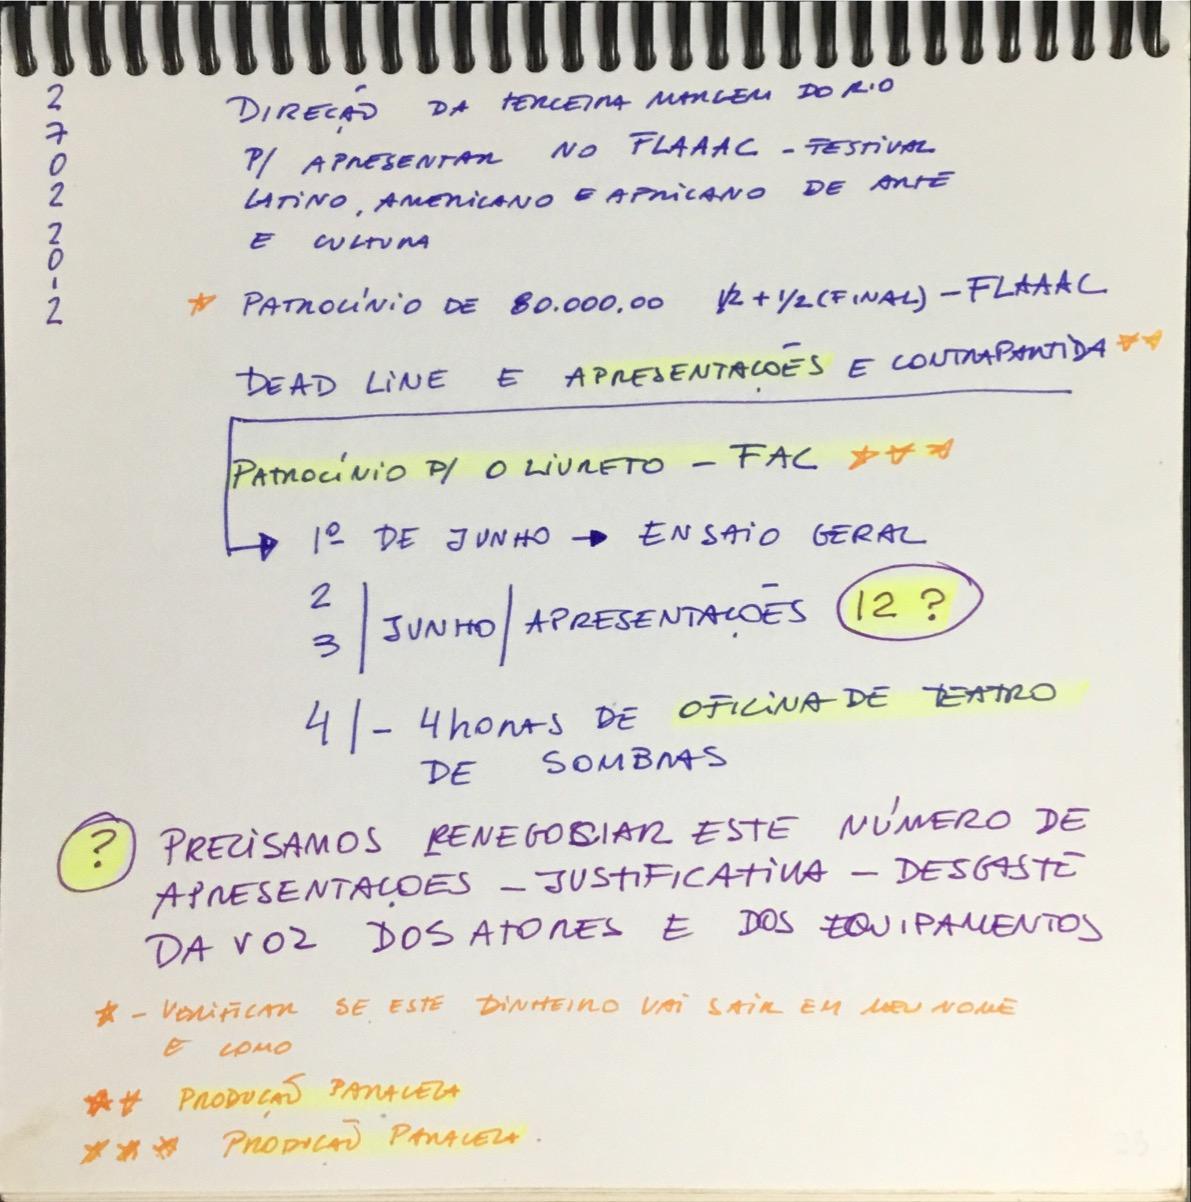 2
7
0
2
2
0
1
2
DIREÇÃO DA TERCEIRA MARGEM DO RIO
P/ APRESENTAR NO FLAAAC - FESTIVAL
LATINO, AMERICANO E AFRICANO DE ARTE
E CULTURA
* PATROCÍNIO DE 80.000.00 1/2 + 1/2 (FINAL) - FLAAAC
DEAD LINE E APRESENTAÇÕES E CONTRAPARTIDA **
PATROCÍNIO P/ O LIVRETO - FAC ***
→ 1º DE JUNHO → ENSAIO GERAL
2
3 | JUNHO | APRESENTAÇÕES 12 ?
4 | - 4 HORAS DE OFICINA DE TEATRO
DE SOMBRAS
? PRECISAMOS RENEGOCIAR ESTE NÚMERO DE
APRESENTAÇOES - JUSTIFICATIVA - DESGASTE
DA VOZ DOS ATORES E DOS EQUIPAMENTOS
* - VERIFICAR SE ESTE DINHEIRO VAI SAIR EM MEU NOME
E COMO
** PRODUÇÃO PARALELA
*** PRODUÇÃO PARALELA.